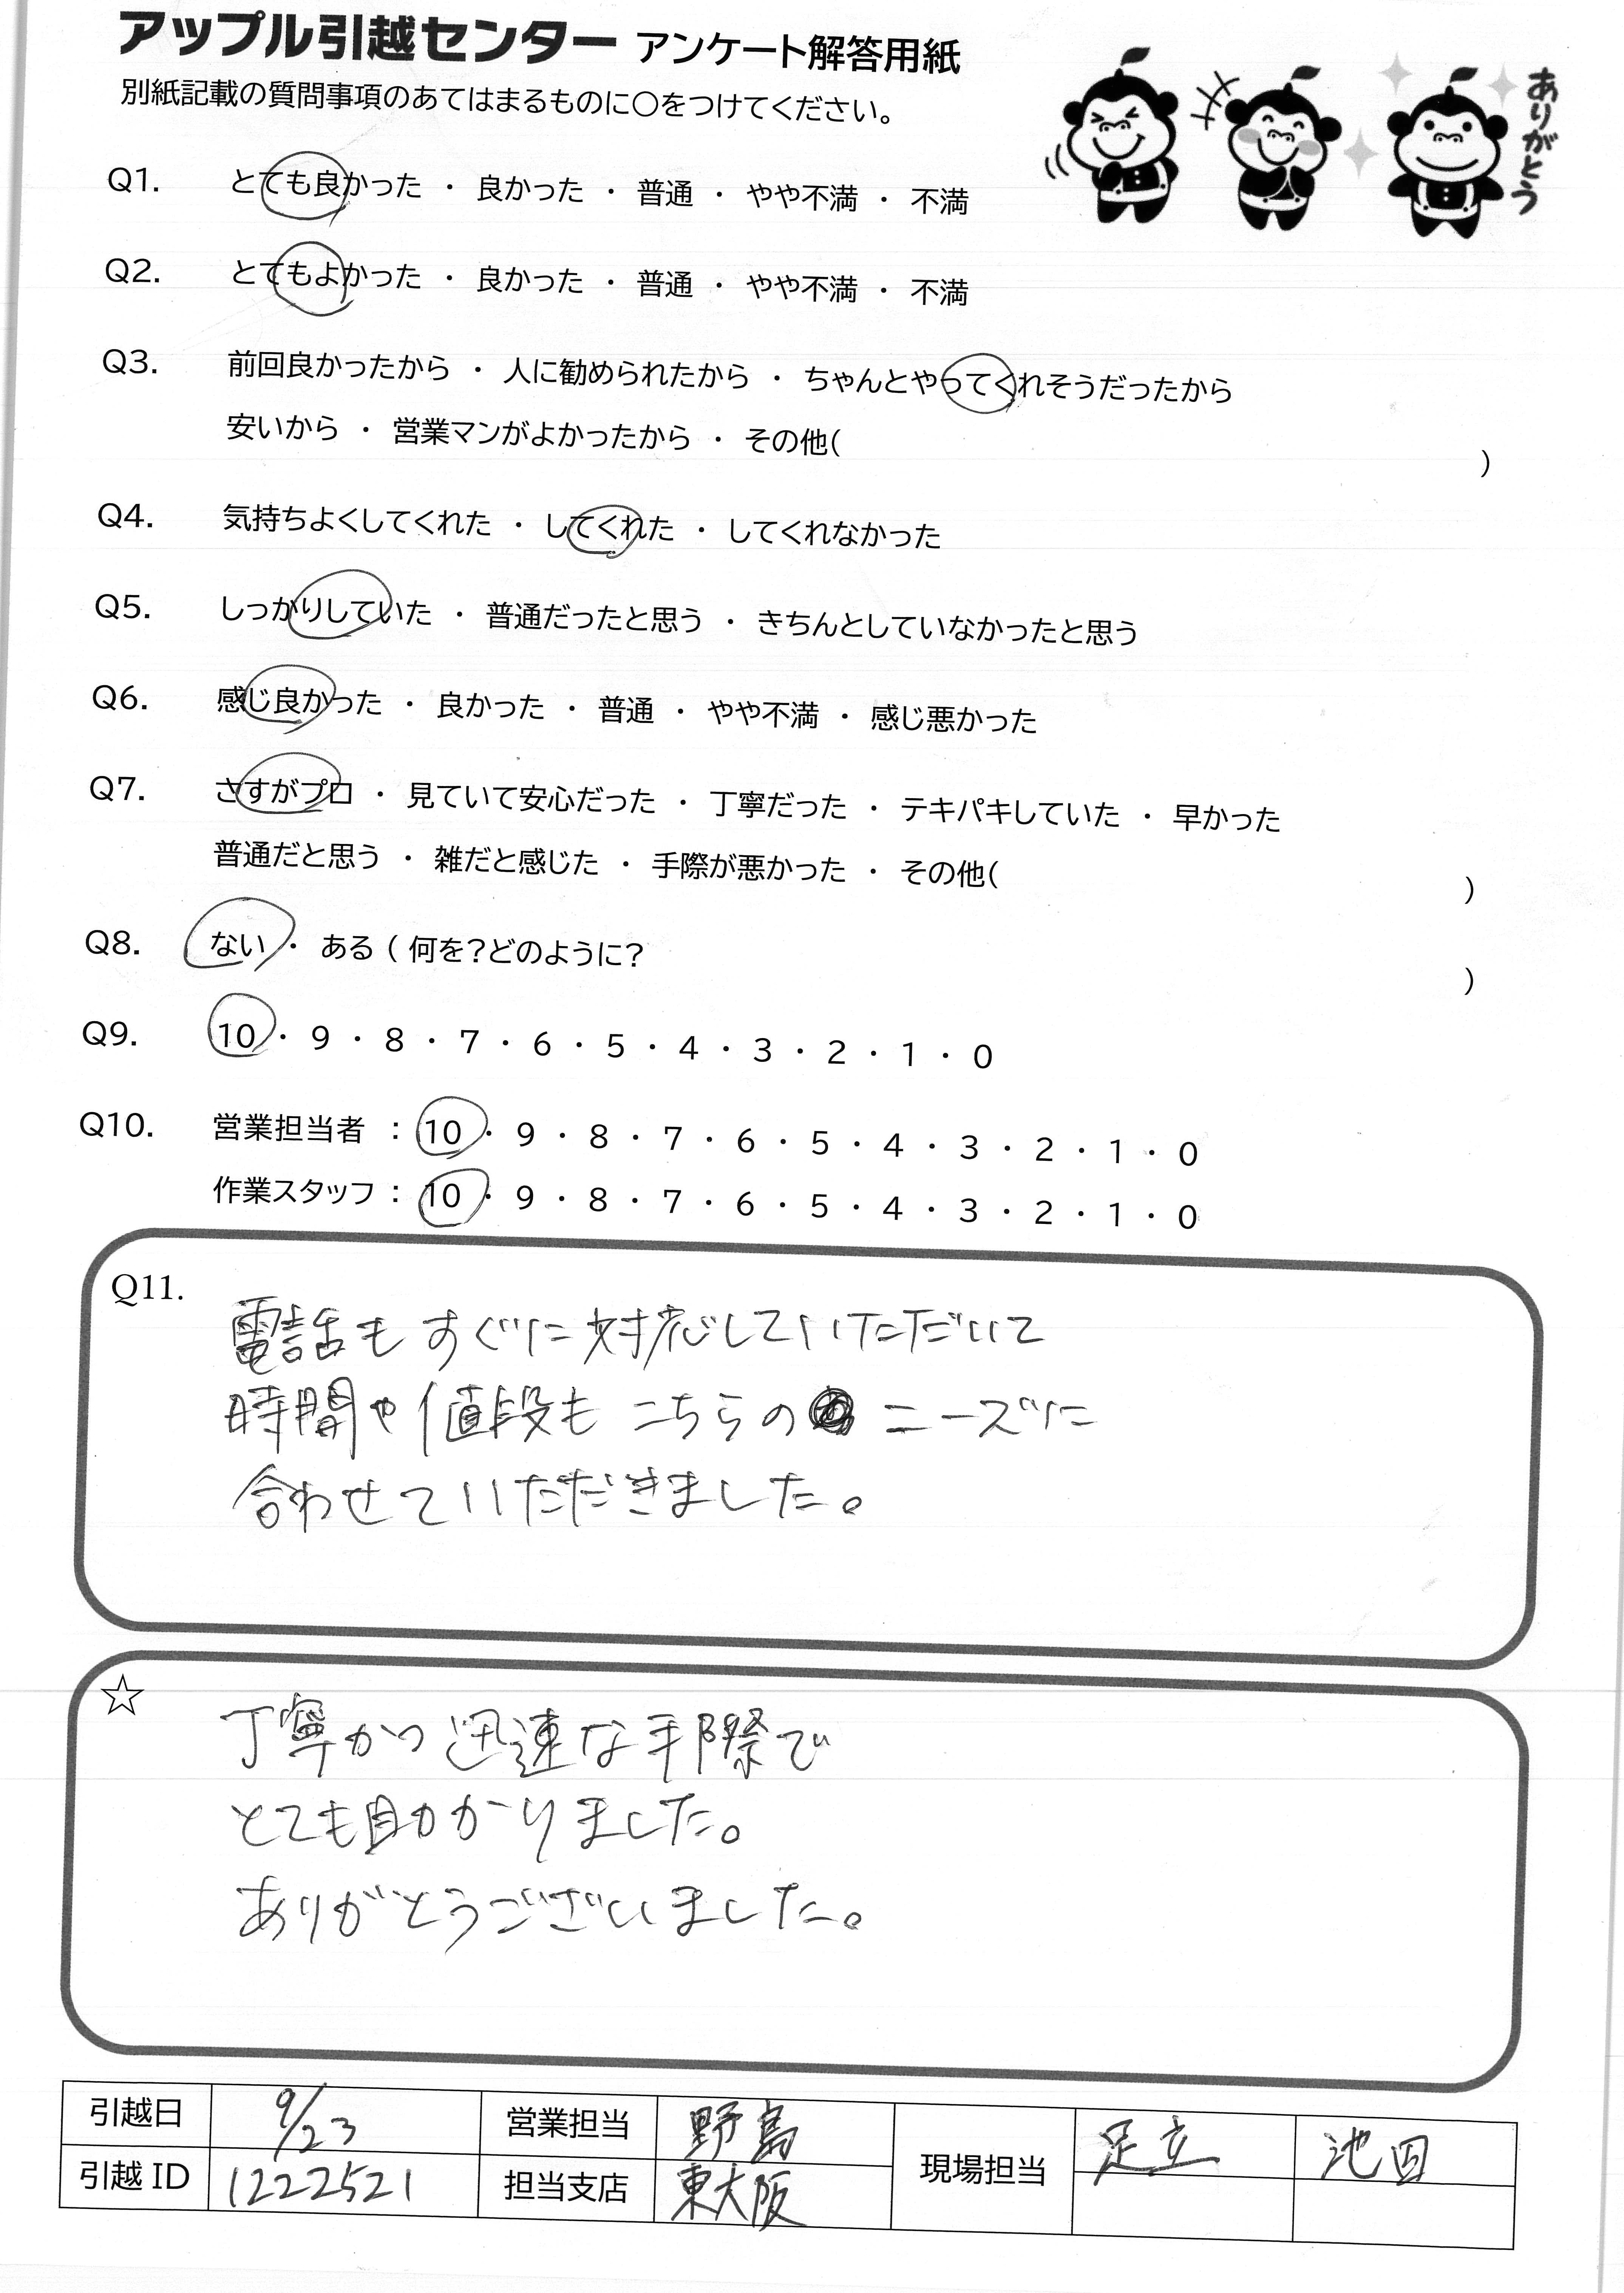 アップル引越センター アンケート解答用紙
別紙記載の質問事項のあてはまるものに〇をつけてください。
ありがとう
Q1. とても良かった ・ 良かった ・ 普通 ・ やや不満 ・ 不満
Q2. とてもよかった ・ 良かった ・ 普通 ・ やや不満 ・ 不満
Q3. 前回良かったから ・ 人に勧められたから ・ ちゃんとやってくれそうだったから
安いから ・ 営業マンがよかったから ・ その他( )
Q4. 気持ちよくしてくれた ・ してくれた ・ してくれなかった
Q5. しっかりしていた ・ 普通だったと思う ・ きちんとしていなかったと思う
Q6. 感じ良かった ・ 良かった ・ 普通 ・ やや不満 ・ 感じ悪かった
Q7. さすがプロ ・ 見ていて安心だった ・ 丁寧だった ・ テキパキしていた ・ 早かった
普通だと思う ・ 雑だと感じた ・ 手際が悪かった ・ その他( )
Q8. ない ・ ある ( 何を?どのように? )
Q9. 10 ・ 9 ・ 8 ・ 7 ・ 6 ・ 5 ・ 4 ・ 3 ・ 2 ・ 1 ・ 0
Q10. 営業担当者 : 10 ・ 9 ・ 8 ・ 7 ・ 6 ・ 5 ・ 4 ・ 3 ・ 2 ・ 1 ・ 0
作業スタッフ : 10 ・ 9 ・ 8 ・ 7 ・ 6 ・ 5 ・ 4 ・ 3 ・ 2 ・ 1 ・ 0
Q11.
電話もすぐに対応していただいて
時間や値段もこちらのニーズに
合わせていただきました。
☆
丁寧かつ迅速な手際で
とても助かりました。
ありがとうございました。
引越日 9/23 営業担当 野島 現場担当 足立 池田
引越 ID 1222521 担当支店 東大阪